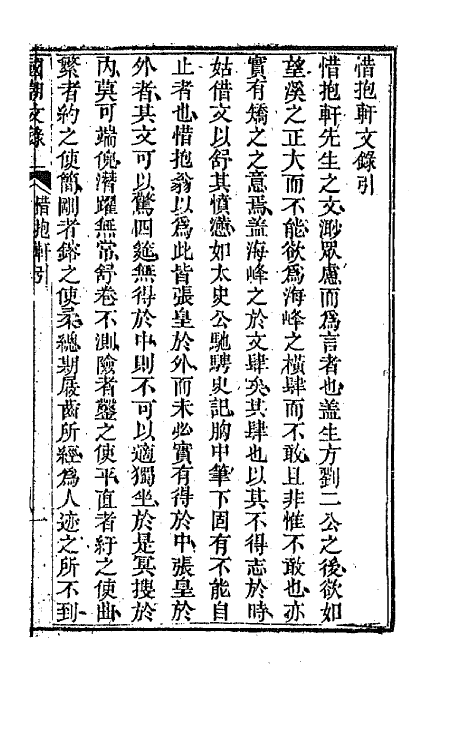 惜抱軒文錄引
惜抱軒先生之文渺眾慮而爲言者也蓋生方劉二公之後欲如
望溪之正大而不能欲爲海峰之橫肆而不敢且非惟不敢也亦
實有矯之之意焉蓋海峰之於文肆矣其肆也以其不得志於時
姑借文以舒其憤懣如太史公馳騁史記胸中筆下固有不能自
止者也惜抱翁以爲此皆張皇於外而未必實有得於中張皇於
外者其文可以驚四筵無得於中則不可以適獨坐於是冥搜於
內莫可端倪潛躍無常舒卷不測險者鑿之使平直者紆之使曲
繁者約之使簡剛者鎔之使柔總期屐齒所經爲人迹之所不到
國朝文錄 惜抱軒引 一